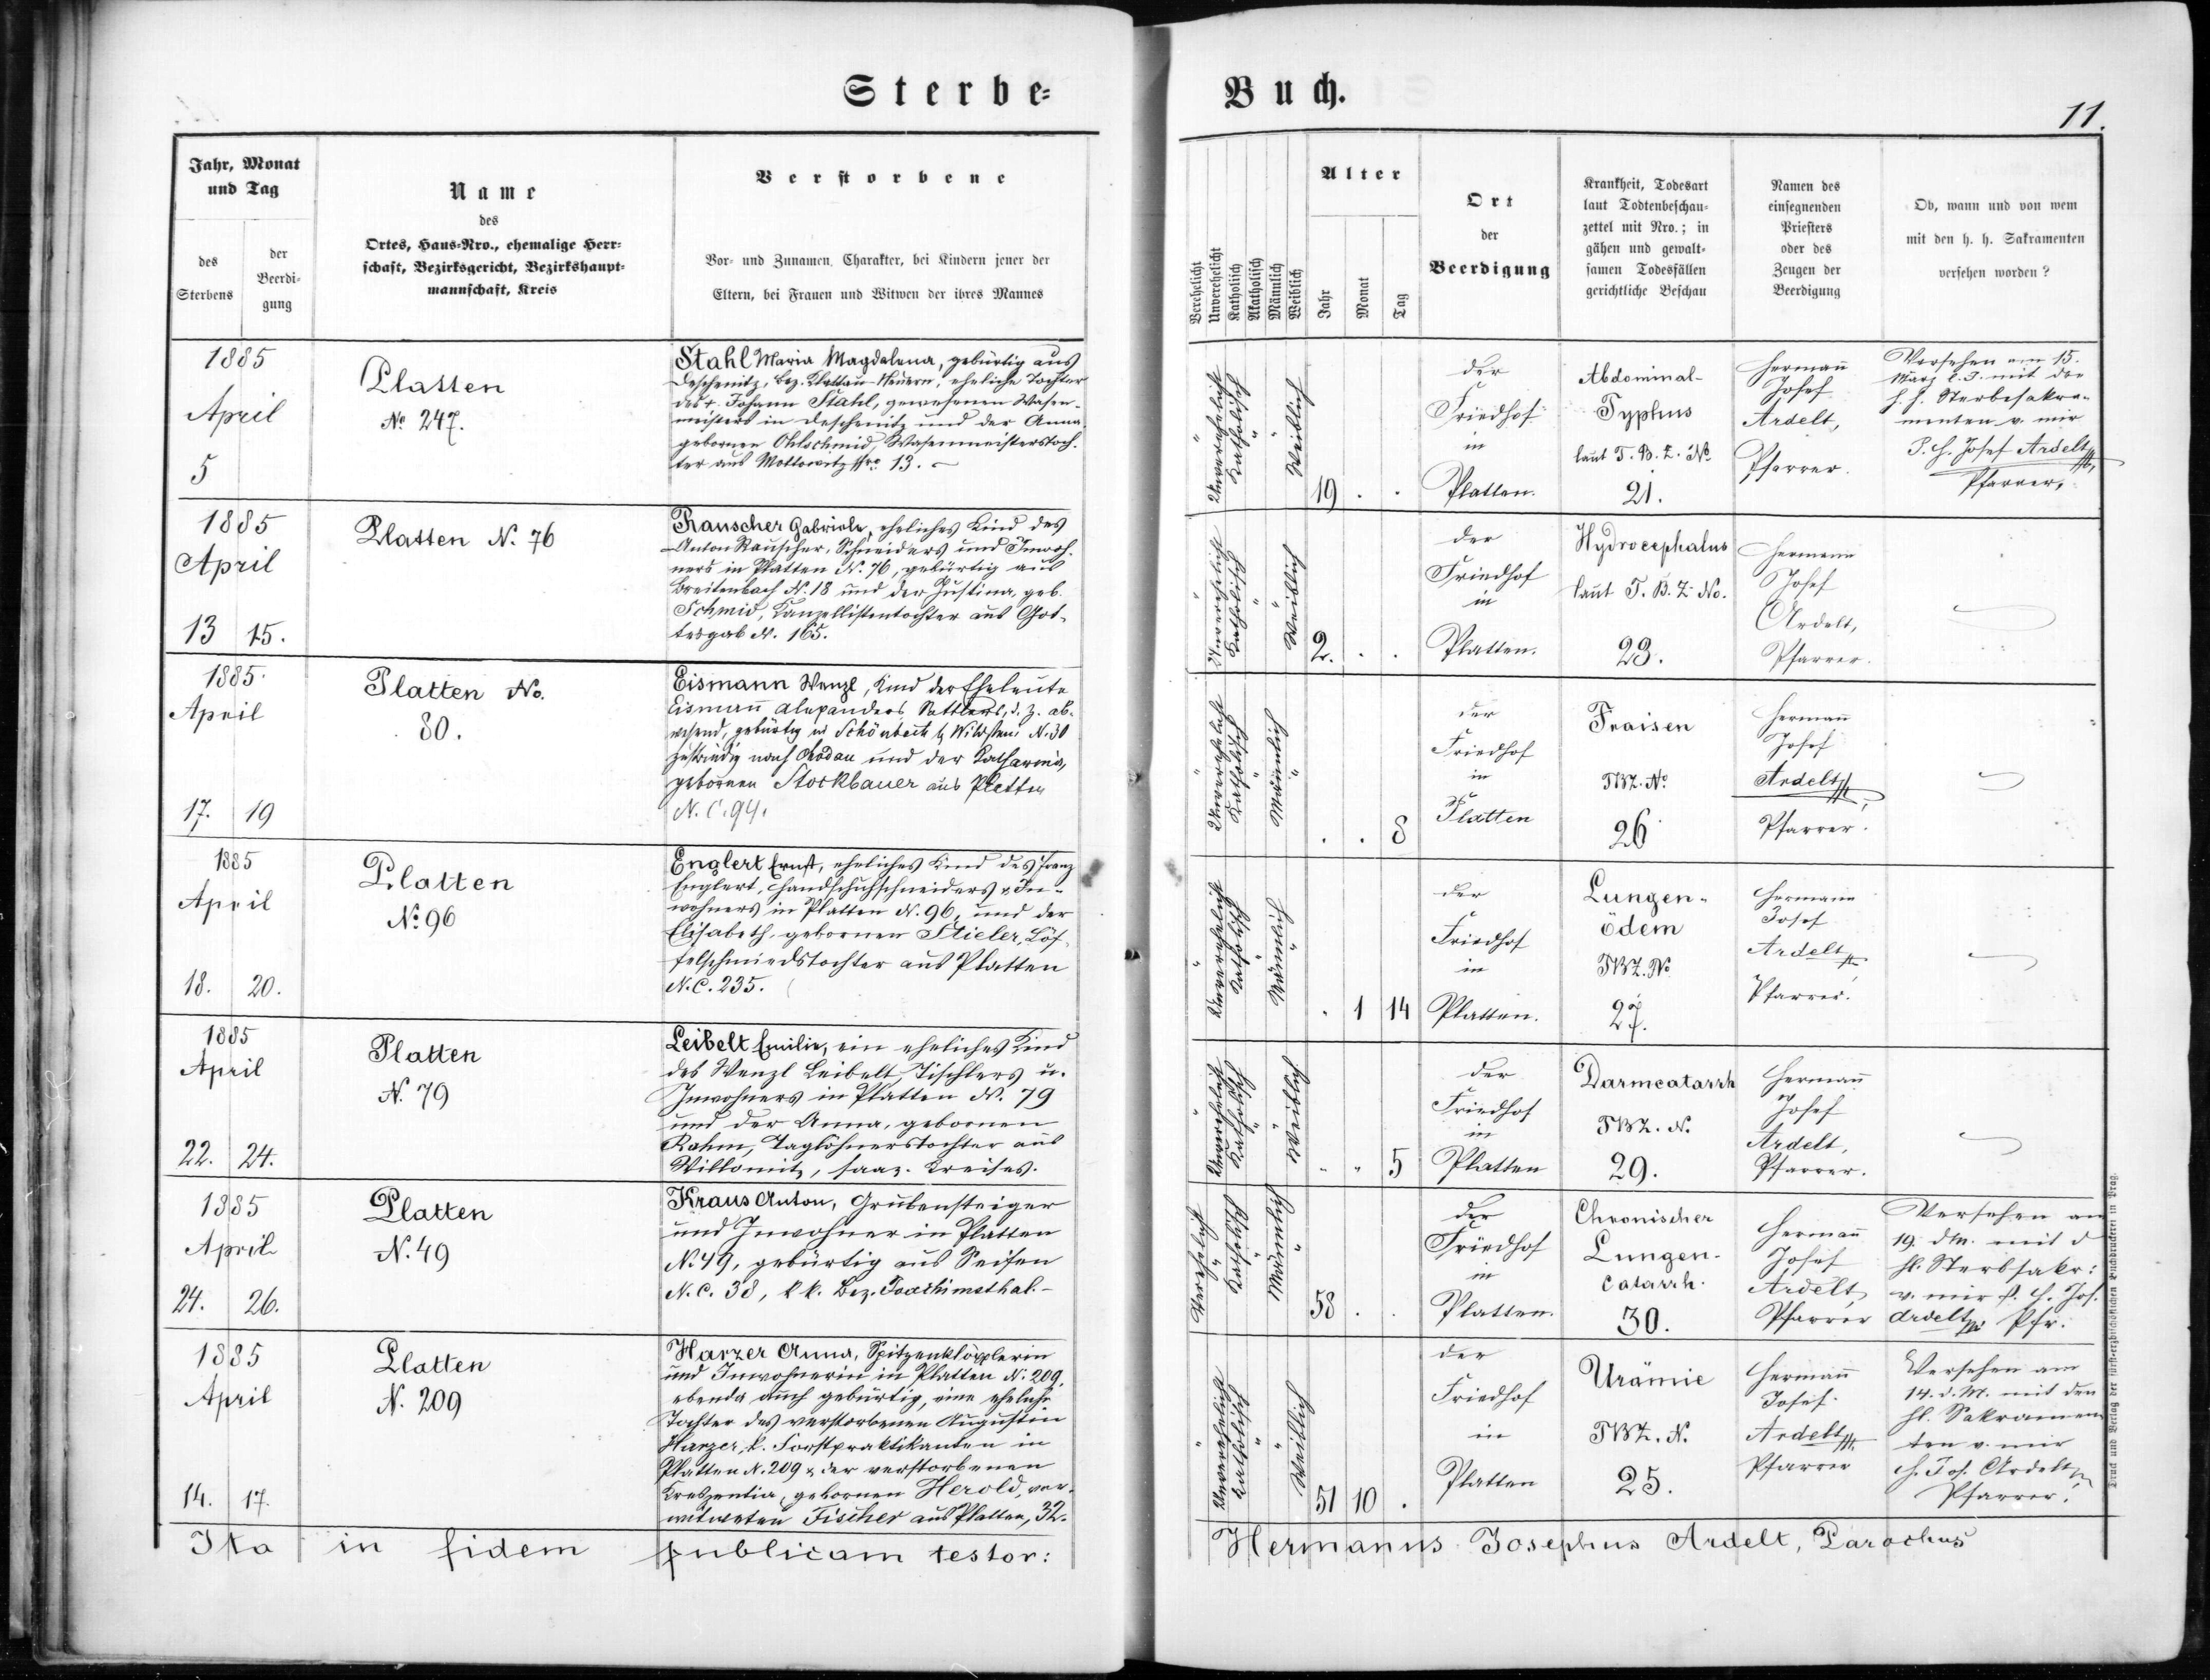 Sterbe-
Buch.
11.
Jahr, Monat
und Tag
des
Sterbens
der
Beerdi-
gung
Name
des
Ortes, Haus-Nro., ehemalige Herr-
schaft, Bezirksgericht, Bezirkshaupt-
mannschaft, Kreis
Verstorbene
Vor- und Zunamen, Charakter, bei Kindern jener der
Eltern, bei Frauen und Witwen der ihres Mannes
Verehelicht
Unverehelicht
Katholisch
Akatholisch
Männlich
Weiblich
Alter
Jahr
Monat
Tag
Ort
der
Beerdigung
Krankheit, Todesart
laut Todtenbeschau-
zettel mit Nro.; in
gähen und gewalt-
samen Todesfällen
gerichtliche Beschau
Namen des
einsegnenden
Priesters
oder des
Zeugen der
Beerdigung
Ob, wann und von wem
mit den h. h. Sakramenten
versehen worden?
1885
April
5
Platten
No 247.
Stahl Maria Magdalena, gebürtig aus
Deschenitz, Bez. Klattau-Neuern, eheliche Tochter
des + Johann Stahl, gewesenen Wasen-
meisters in Deschenitz und der Anna
gebornen Ohlschmid, Wasenmeisterstoch-
ter aus Mottowitz Nro 13. –
Unverehelicht
Katholisch
Weiblich
19 . .
der
Friedhof
in
Platten.
Abdominal-
Typhus
laut T. B. Z. No
21.
Hermann
Josef
Ardelt,
Pfarrer.
Versehen am 15.
März l. J. mit den
h. h. Sterbesakra-
menten v. mir
P. H. Josef Ardelt,
Pfarrer.
1885
April
13 15.
Platten N. 76
Rauscher Gabriele, eheliches Kind des
Anton Rauscher, Schneiders und Inwoh-
ners in Platten N. 76, gebürtig aus
Breitenbach N. 18 und der Justina, geb.
Schmid, Kanzellistentochter aus Got-
tesgab N. 165.
Unverehelicht
Katholisch
Weiblich
2. . .
der
Friedhof
in
Platten.
Hydrocephalus
laut T. B. Z. No.
23.
Hermann
Josef
Ardelt,
Pfarrer.
1885.
April
17. 19
Platten No.
80.
Eismann Wenzl, Kind der Eheleute
Eismann Alexanders Sattlers, d. Z. ab-
wesend, gebürtig in Schönbach b. Wildstein N. 30
zuständig nach und der Katharina,
gebornen Stockbauer aus Platten
N. C. 94.
Unverehelicht
Katholisch
Männlich
. . 8
der
Friedhof
in
Platten
Fraisen
TBZ. No
26
Hermann
Josef
Ardelt,
Pfarrer.
1885
April
18. 20.
Platten
No 96
Englert Ernst, eheliches Kind des Franz
Englert, Handschuhschneiders & In-
wohners in Platten N. 96, und der
Elisabeth, gebornen Stieler, Löf-
felschmiedstochter aus Platten
N. C. 235.
Unverehelicht
Katholisch
Männlich
. 1 14
der
Friedhof
in
Platten.
Lungen-
ödem
TBZ. No
27.
Hermann
Josef
Ardelt
Pfarrer.
1885
April
22. 24.
Platten
N. 79
Leibelt Emilie, ein eheliches Kind
des Wenzl Leibelt, Tischlers u.
Inwohners in Platten N. 79
und der Anna, gebornen
Rahm, Taglöhnerstochter aus
Willomitz, saaz. Kreises.
Unverehelicht
Katholisch
Weiblich
. . 5
der
Friedhof
in
Platten
Darmcatarrh
TBZ. N.
29.
Hermann
Josef
Ardelt,
Pfarrer.
1885
April
24. 26.
Platten
N. 49
Kraus Anton, Grubensteiger
und Inwohner in Platten
No 49, gebürtig aus Seifen
N. C. 38, k. k. Bez. Joachimsthal. –
Verehelicht
Katholisch
Männlich
58 . .
der
Friedhof
in
Platten.
Chronischer
Lungen-
catarrh.
30.
Hermann
Josef
Ardelt
Pfarrer
Versehen am
19. dM. mit d
hl. Sterbsakr:
v. mir P. H. Jos.
Ardelt Pfr.
1885
April
14. 17.
Platten
N. 209
Harzer Anna, Spitzenklöpplerin
und Inwohnerin in Platten N. 209,
ebenda auch gebürtig, eine eheliche
Tochter des verstorbenen Augustin
Harzer, k. Forstpraktikanten in
Platten N. 209 & der verstorbenen
Kreszentia, gebornen Herold, ver-
witweten Fischer aus Platten, 32.
Unverehelicht
Katholisch
Weiblich
51 10 .
der
Friedhof
in
Platten
Urämie
TBZ. N.
25.
Hermann
Josef
Ardelt
Pfarrer
Versehen am
14. d. M. mit den
hl. Sakramen
ten v. mir
H. Jos. Ardelt
Pfarrer.
Ita in fidem publicam testor:
Hermanus Josephus Ardelt, Parochus
Druck und Verlag der fürst-erzbischöflichen Buchdruckerei in Prag.